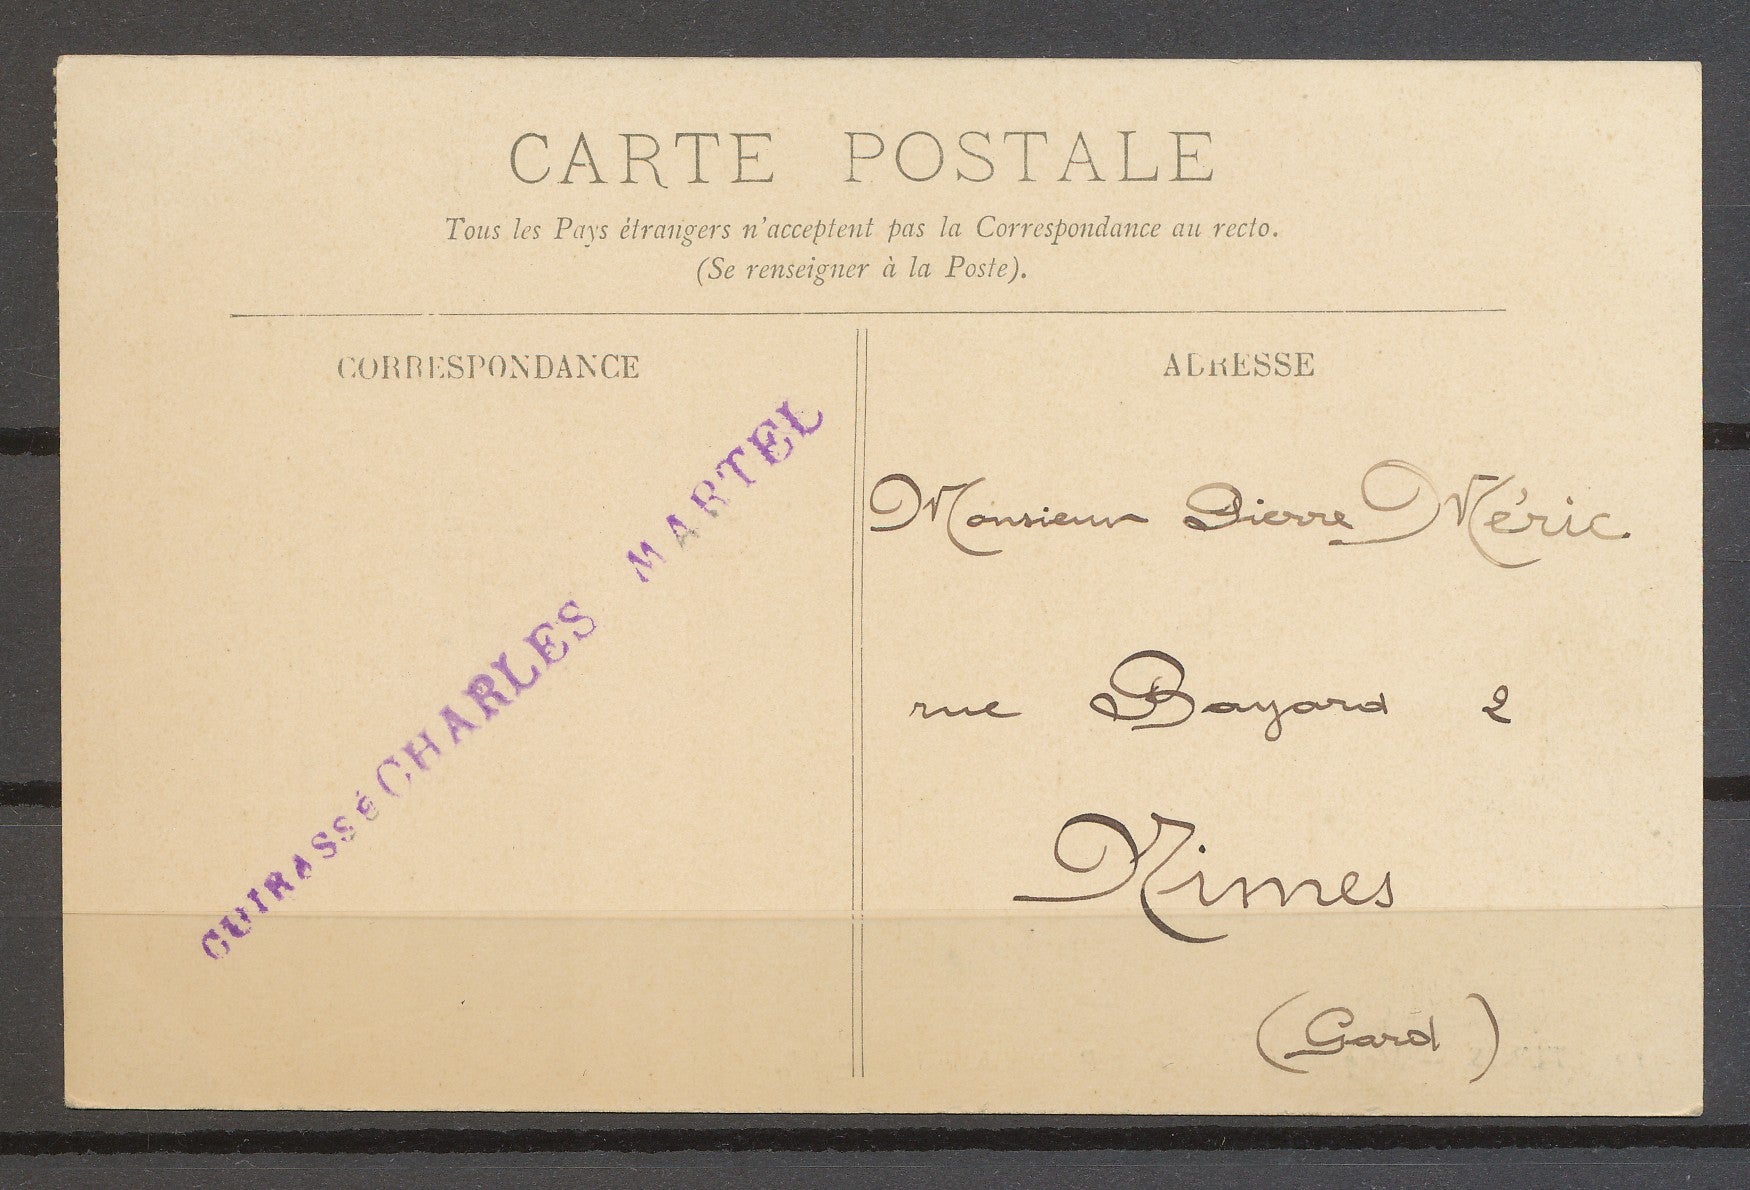 CARTE POSTALE
Tous les Pays étrangers n'acceptent pas la Correspondance au recto.
(Se renseigner à la Poste).
CORRESPONDANCE
CUIRASSÉ CHARLES MARTEL
ADRESSE
Monsieur Pierre Méric.
rue Bayard 2
Nimes
(Gard)